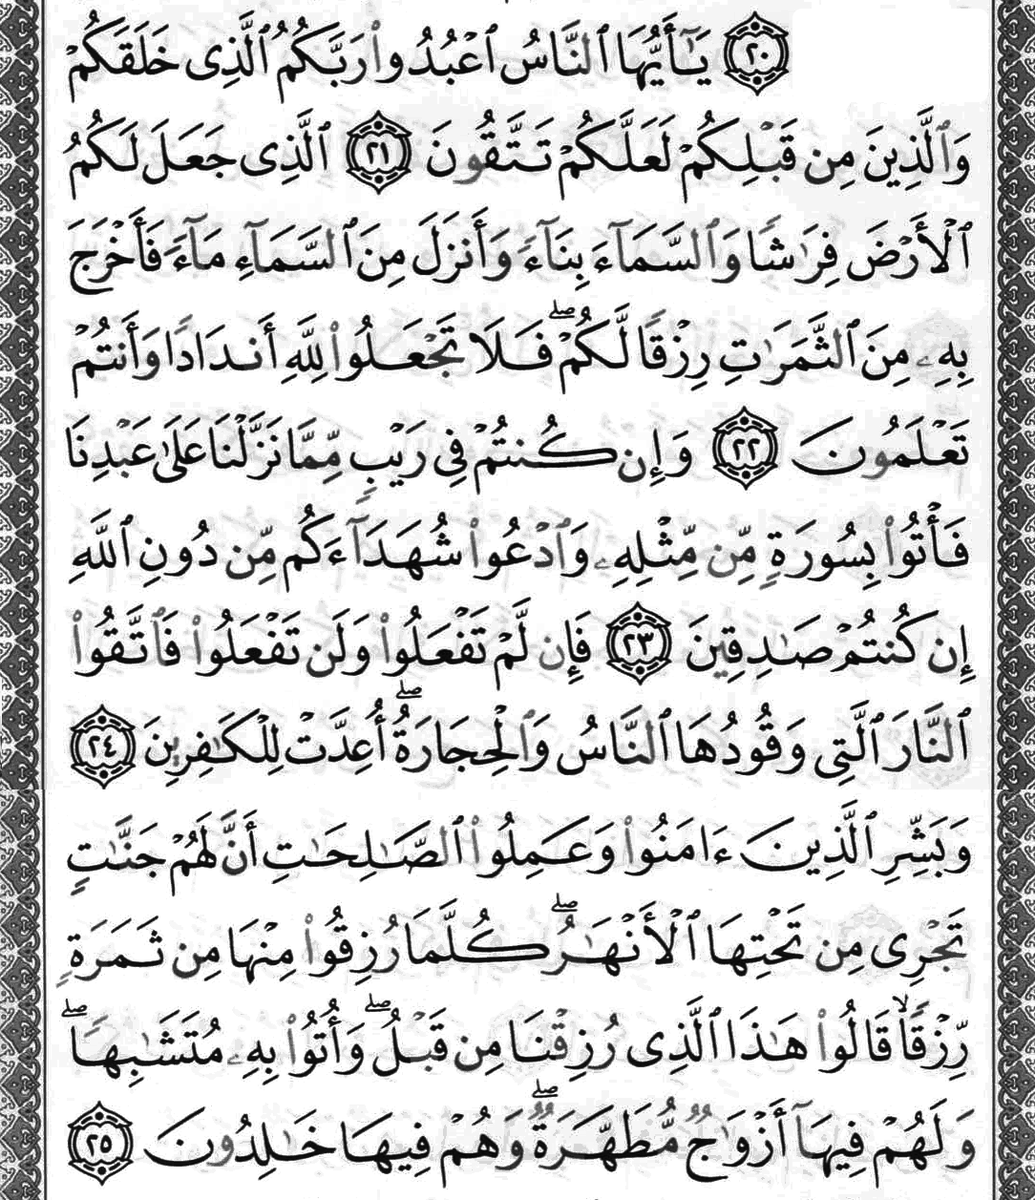 ﴿٢٠﴾ يَـٰٓأَيُّهَا ٱلنَّاسُ ٱعْبُدُوا۟ رَبَّكُمُ ٱلَّذِى خَلَقَكُمْ
وَٱلَّذِينَ مِن قَبْلِكُمْ لَعَلَّكُمْ تَتَّقُونَ ﴿٢١﴾ ٱلَّذِى جَعَلَ لَكُمُ
ٱلْأَرْضَ فِرَٰشًا وَٱلسَّمَآءَ بِنَآءً وَأَنزَلَ مِنَ ٱلسَّمَآءِ مَآءً فَأَخْرَجَ
بِهِۦ مِنَ ٱلثَّمَرَٰتِ رِزْقًا لَّكُمْ ۖ فَلَا تَجْعَلُوا۟ لِلَّهِ أَندَادًا وَأَنتُمْ
تَعْلَمُونَ ﴿٢٢﴾ وَإِن كُنتُمْ فِى رَيْبٍ مِّمَّا نَزَّلْنَا عَلَىٰ عَبْدِنَا
فَأْتُوا۟ بِسُورَةٍ مِّن مِّثْلِهِۦ وَٱدْعُوا۟ شُهَدَآءَكُم مِّن دُونِ ٱللَّهِ
إِن كُنتُمْ صَـٰدِقِينَ ﴿٢٣﴾ فَإِن لَّمْ تَفْعَلُوا۟ وَلَن تَفْعَلُوا۟ فَٱتَّقُوا۟
ٱلنَّارَ ٱلَّتِى وَقُودُهَا ٱلنَّاسُ وَٱلْحِجَارَةُ ۖ أُعِدَّتْ لِلْكَـٰفِرِينَ ﴿٢٤﴾
وَبَشِّرِ ٱلَّذِينَ ءَامَنُوا۟ وَعَمِلُوا۟ ٱلصَّـٰلِحَـٰتِ أَنَّ لَهُمْ جَنَّـٰتٍ
تَجْرِى مِن تَحْتِهَا ٱلْأَنْهَـٰرُ ۖ كُلَّمَا رُزِقُوا۟ مِنْهَا مِن ثَمَرَةٍ
رِّزْقًا ۙ قَالُوا۟ هَـٰذَا ٱلَّذِى رُزِقْنَا مِن قَبْلُ ۖ وَأُتُوا۟ بِهِۦ مُتَشَـٰبِهًا ۖ
وَلَهُمْ فِيهَآ أَزْوَٰجٌ مُّطَهَّرَةٌ ۖ وَهُمْ فِيهَا خَـٰلِدُونَ ﴿٢٥﴾